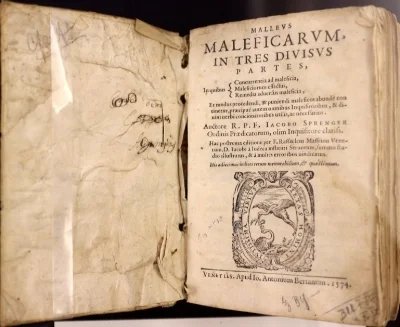 MALLEVS
MALEFICARVM,
IN TRES DIVISVS
PARTES,
In quibus
Concurrentia ad maleficia,
Maleficiorum effectus,
Remedia aduersus maleficia,
Et modus procedendi, & puniendi maleficos abundè con-
tinetur, præcipuè autem omnibus Inquisitoribus, & di-
uini verbi concionatoribus vtilis, ac necessarius.
Auctore R. P. F. IACOBO SPRENGER
Ordinis Prædicatorum, olim Inquisitore clariss.
Hac postrema editione per F. Raffaelem Maffeum Vene-
tum, D. Iacobi à Iudeca instituti Seruorum, summo stu-
dio illustratus, & à multis erroribus vendicatus.
His adiecimus indices rerum memorabilium, & quæstionum.
VENETIIS, Apud Io. Antonium Bertanum. 1574.